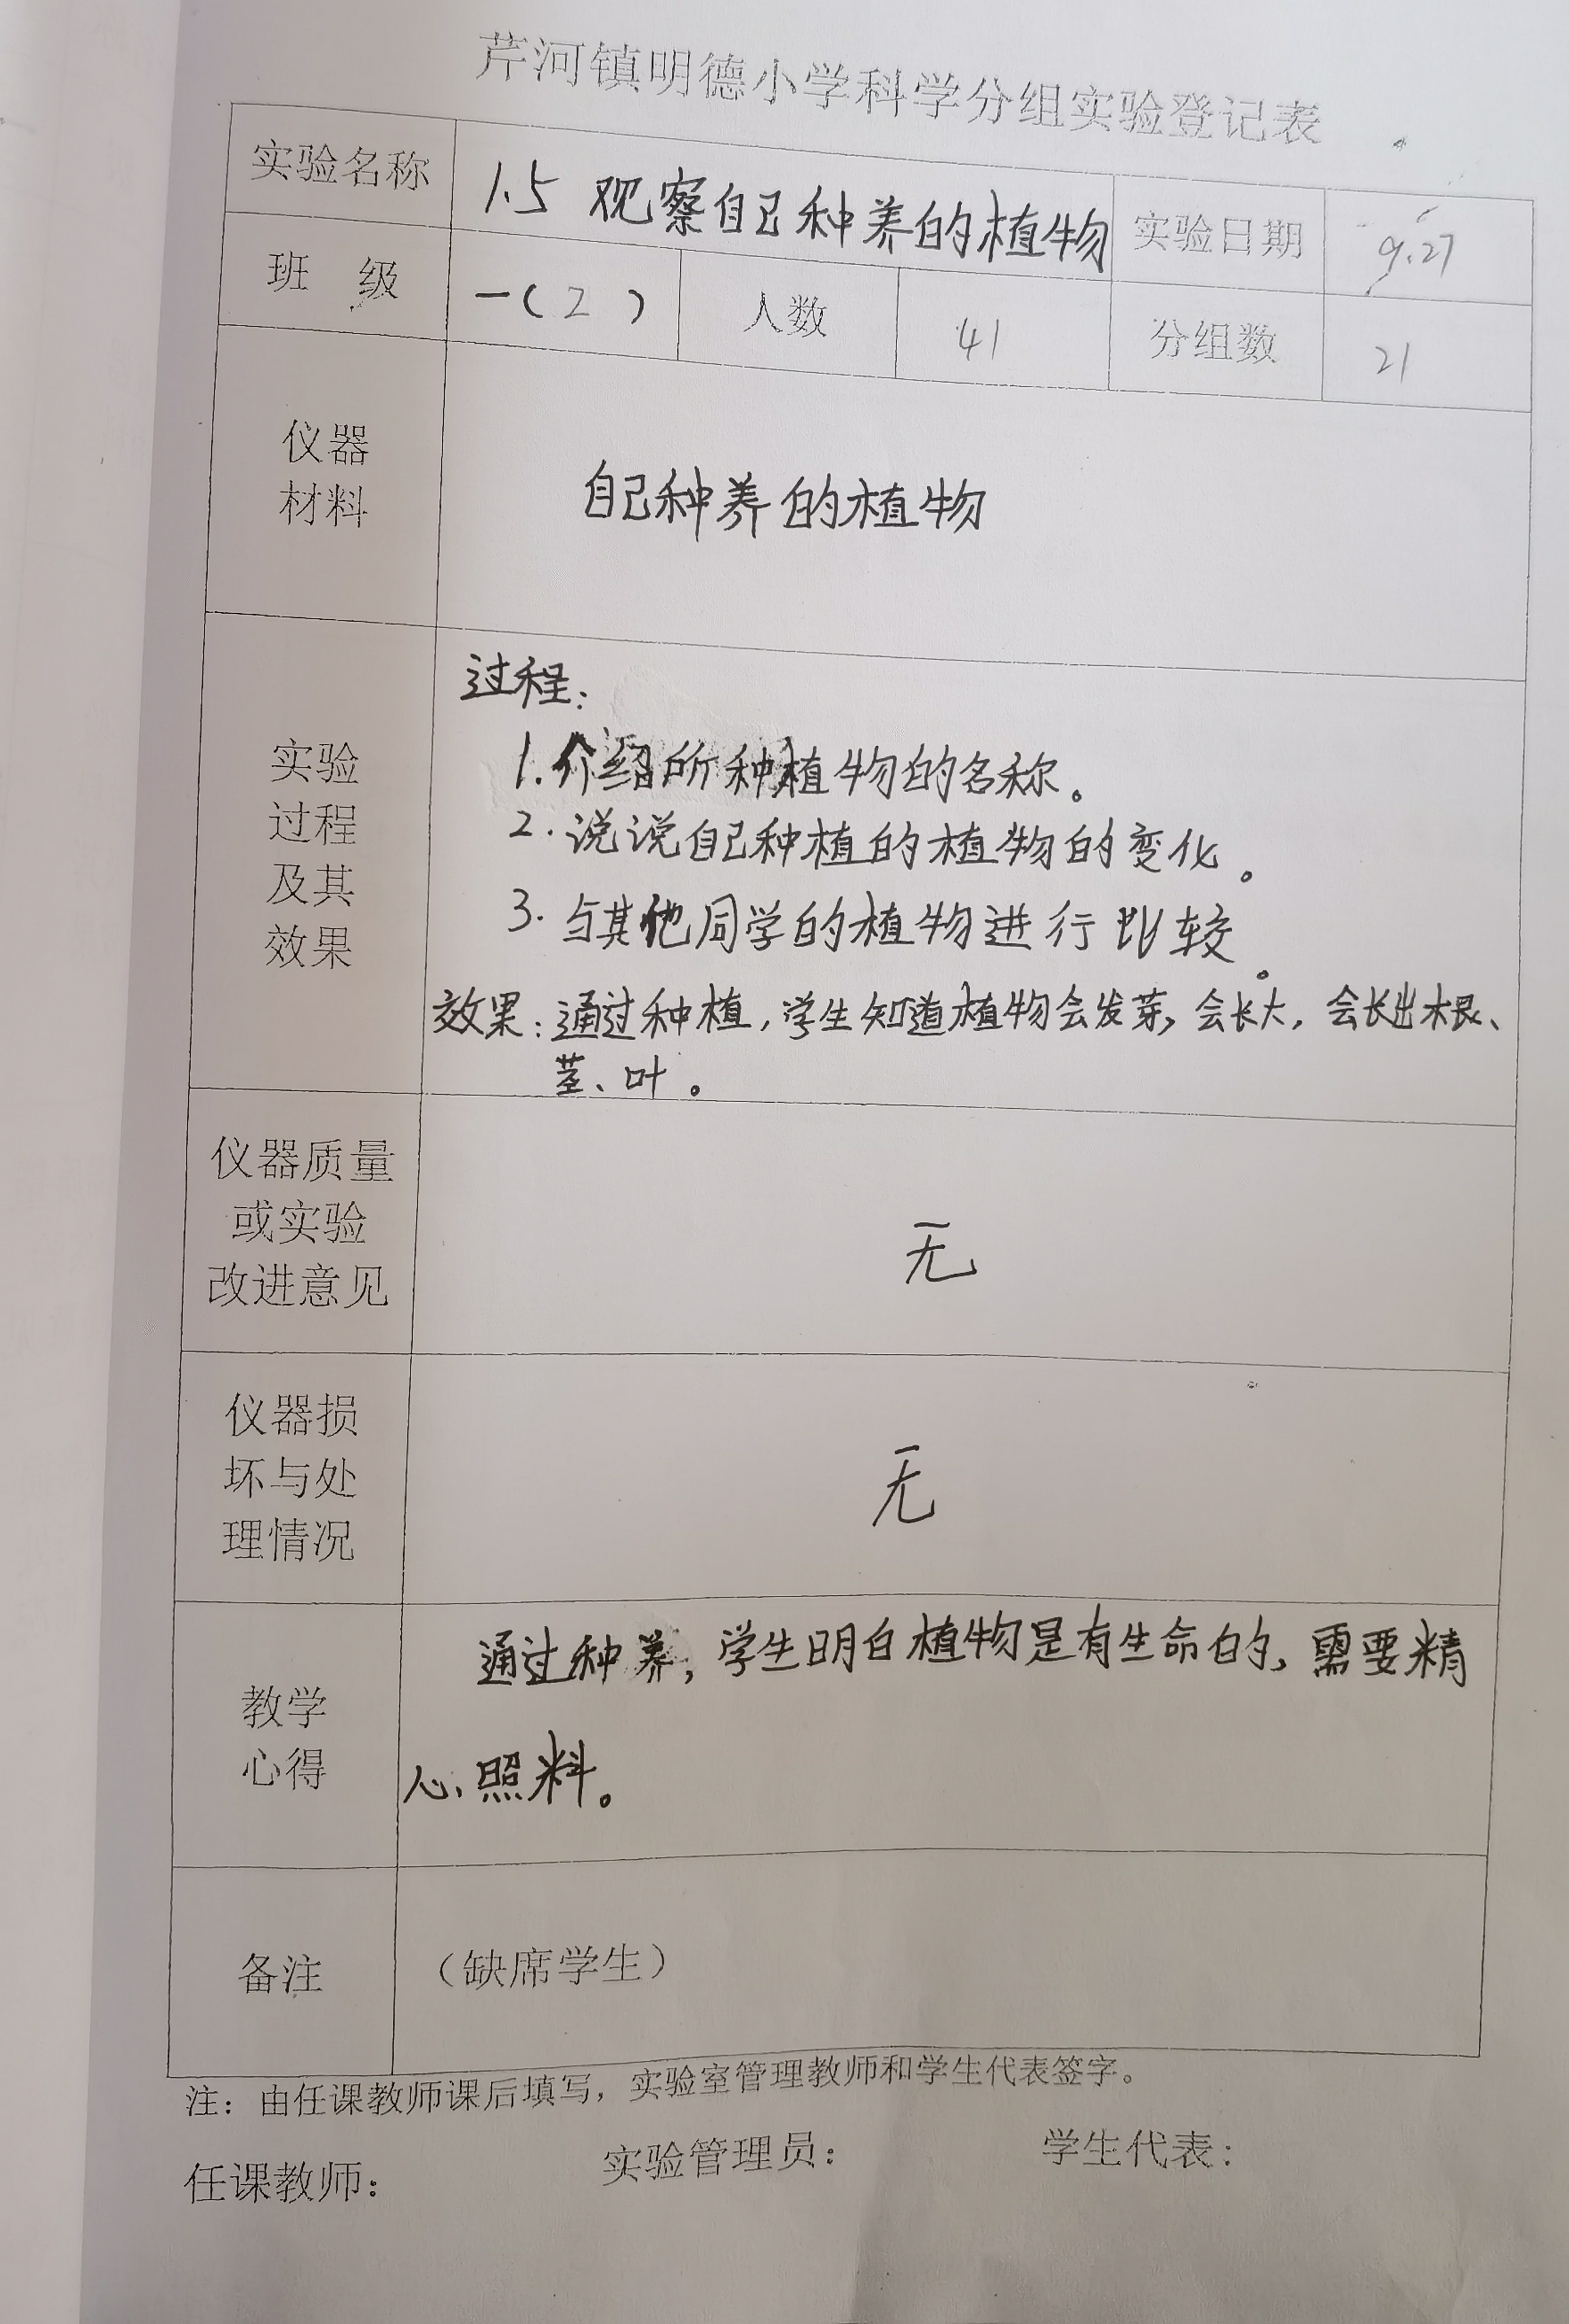 芹河镇明德小学科学分组实验登记表
实验名称 1.5 观察自己种养的植物 实验日期 9.27
班 级 一(2) 人数 41 分组数 21
仪器
材料
自己种养的植物
实验
过程
及其
效果
过程:
1.介绍所种植物的名称。
2.说说自己种植的植物的变化。
3.与其他同学的植物进行比较。
效果:通过种植,学生知道植物会发芽,会长大,会长出根、
茎、叶。
仪器质量
或实验
改进意见
无
仪器损
坏与处
理情况
无
教学
心得
通过种养,学生明白植物是有生命的,需要精
心照料。
备注 (缺席学生)
注:由任课教师课后填写,实验室管理教师和学生代表签字。
任课教师: 实验管理员: 学生代表: